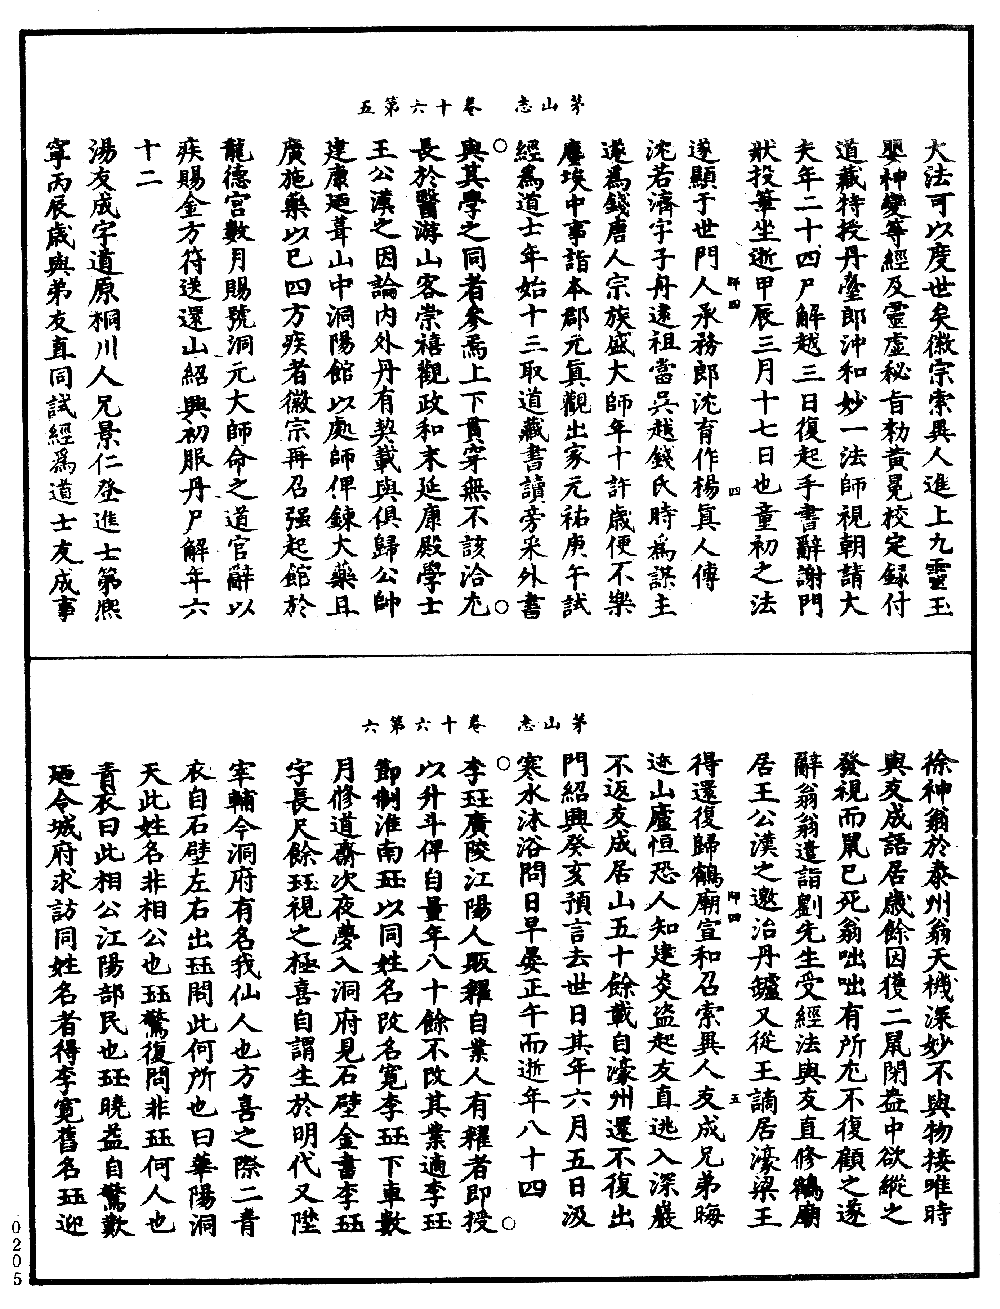 茅山志　卷十六第五
大法可以度世矣徽宗索異人進上九靈玉
嬰神變等經及靈虛秘旨勑黄冕校定録付
道藏特授丹臺郎沖和妙一法師視朝請大
夫年二十四尸解越三日復起手書辭謝門
狀投筆坐逝甲辰三月十七日也童初之法
師四　四
遂顯于世門人承務郎沈育作楊真人傳
沈若濟字子舟遠祖當吳越錢氏時爲謀主
遂爲錢唐人宗族盛大師年十許歲便不樂
塵埃中事詣本郡元真觀出家元祐庚午試
經爲道士年始十三取道藏書讀旁采外書
與其學之同者參焉上下貫穿無不該洽尤
長於醫游山客崇禧觀政和末延康殿學士
王公漢之因論内外丹有契載與俱歸公帥
建康廼葺山中洞陽館以處師俾鍊大藥且
廣施藥以已四方疾者徽宗再召强起館於
龍德宮數月賜號洞元大師命之道官辭以
疾賜金方符送還山紹興初服丹尸解年六
十二
湯友成字道原桐川人兄景仁登進士第熙
寧丙辰歲與弟友直同試經爲道士友成事
茅山志　卷十六第六
徐神翁於泰州翁天機深妙不與物接唯時
與友成語居歲餘因獲二鼠閉盎中欲縱之
發視而鼠已死翁咄咄有所尤不復顧之遂
辭翁翁遣詣劉先生受經法與友直修鶴廟
居王公漢之邀治丹鑪又從王謫居濠梁王
師四　五
得還復歸鶴廟宣和召索異人友成兄弟晦
迹山廬恒恐人知建炎盜起友直逃入深巖
不返友成居山五十餘載自濠州還不復出
門紹興癸亥預言去世日其年六月五日汲
寒水沐浴問日早晏正午而逝年八十四
李珏廣陵江陽人販糴自業人有糴者即授
以升斗俾自量年八十餘不改其業適李珏
節制淮南珏以同姓名改名寛李珏下車數
月修道齋次夜夢入洞府見石壁金書李珏
字長尺餘珏視之極喜自謂生於明代又陞
宰輔今洞府有名我仙人也方喜之際二青
衣自石壁左右出珏問此何所也曰華陽洞
天此姓名非相公也珏驚復問非珏何人也
青衣曰此相公江陽部民也珏曉益自驚歎
廼令城府求訪同姓名者得李寛舊名珏迎
0205